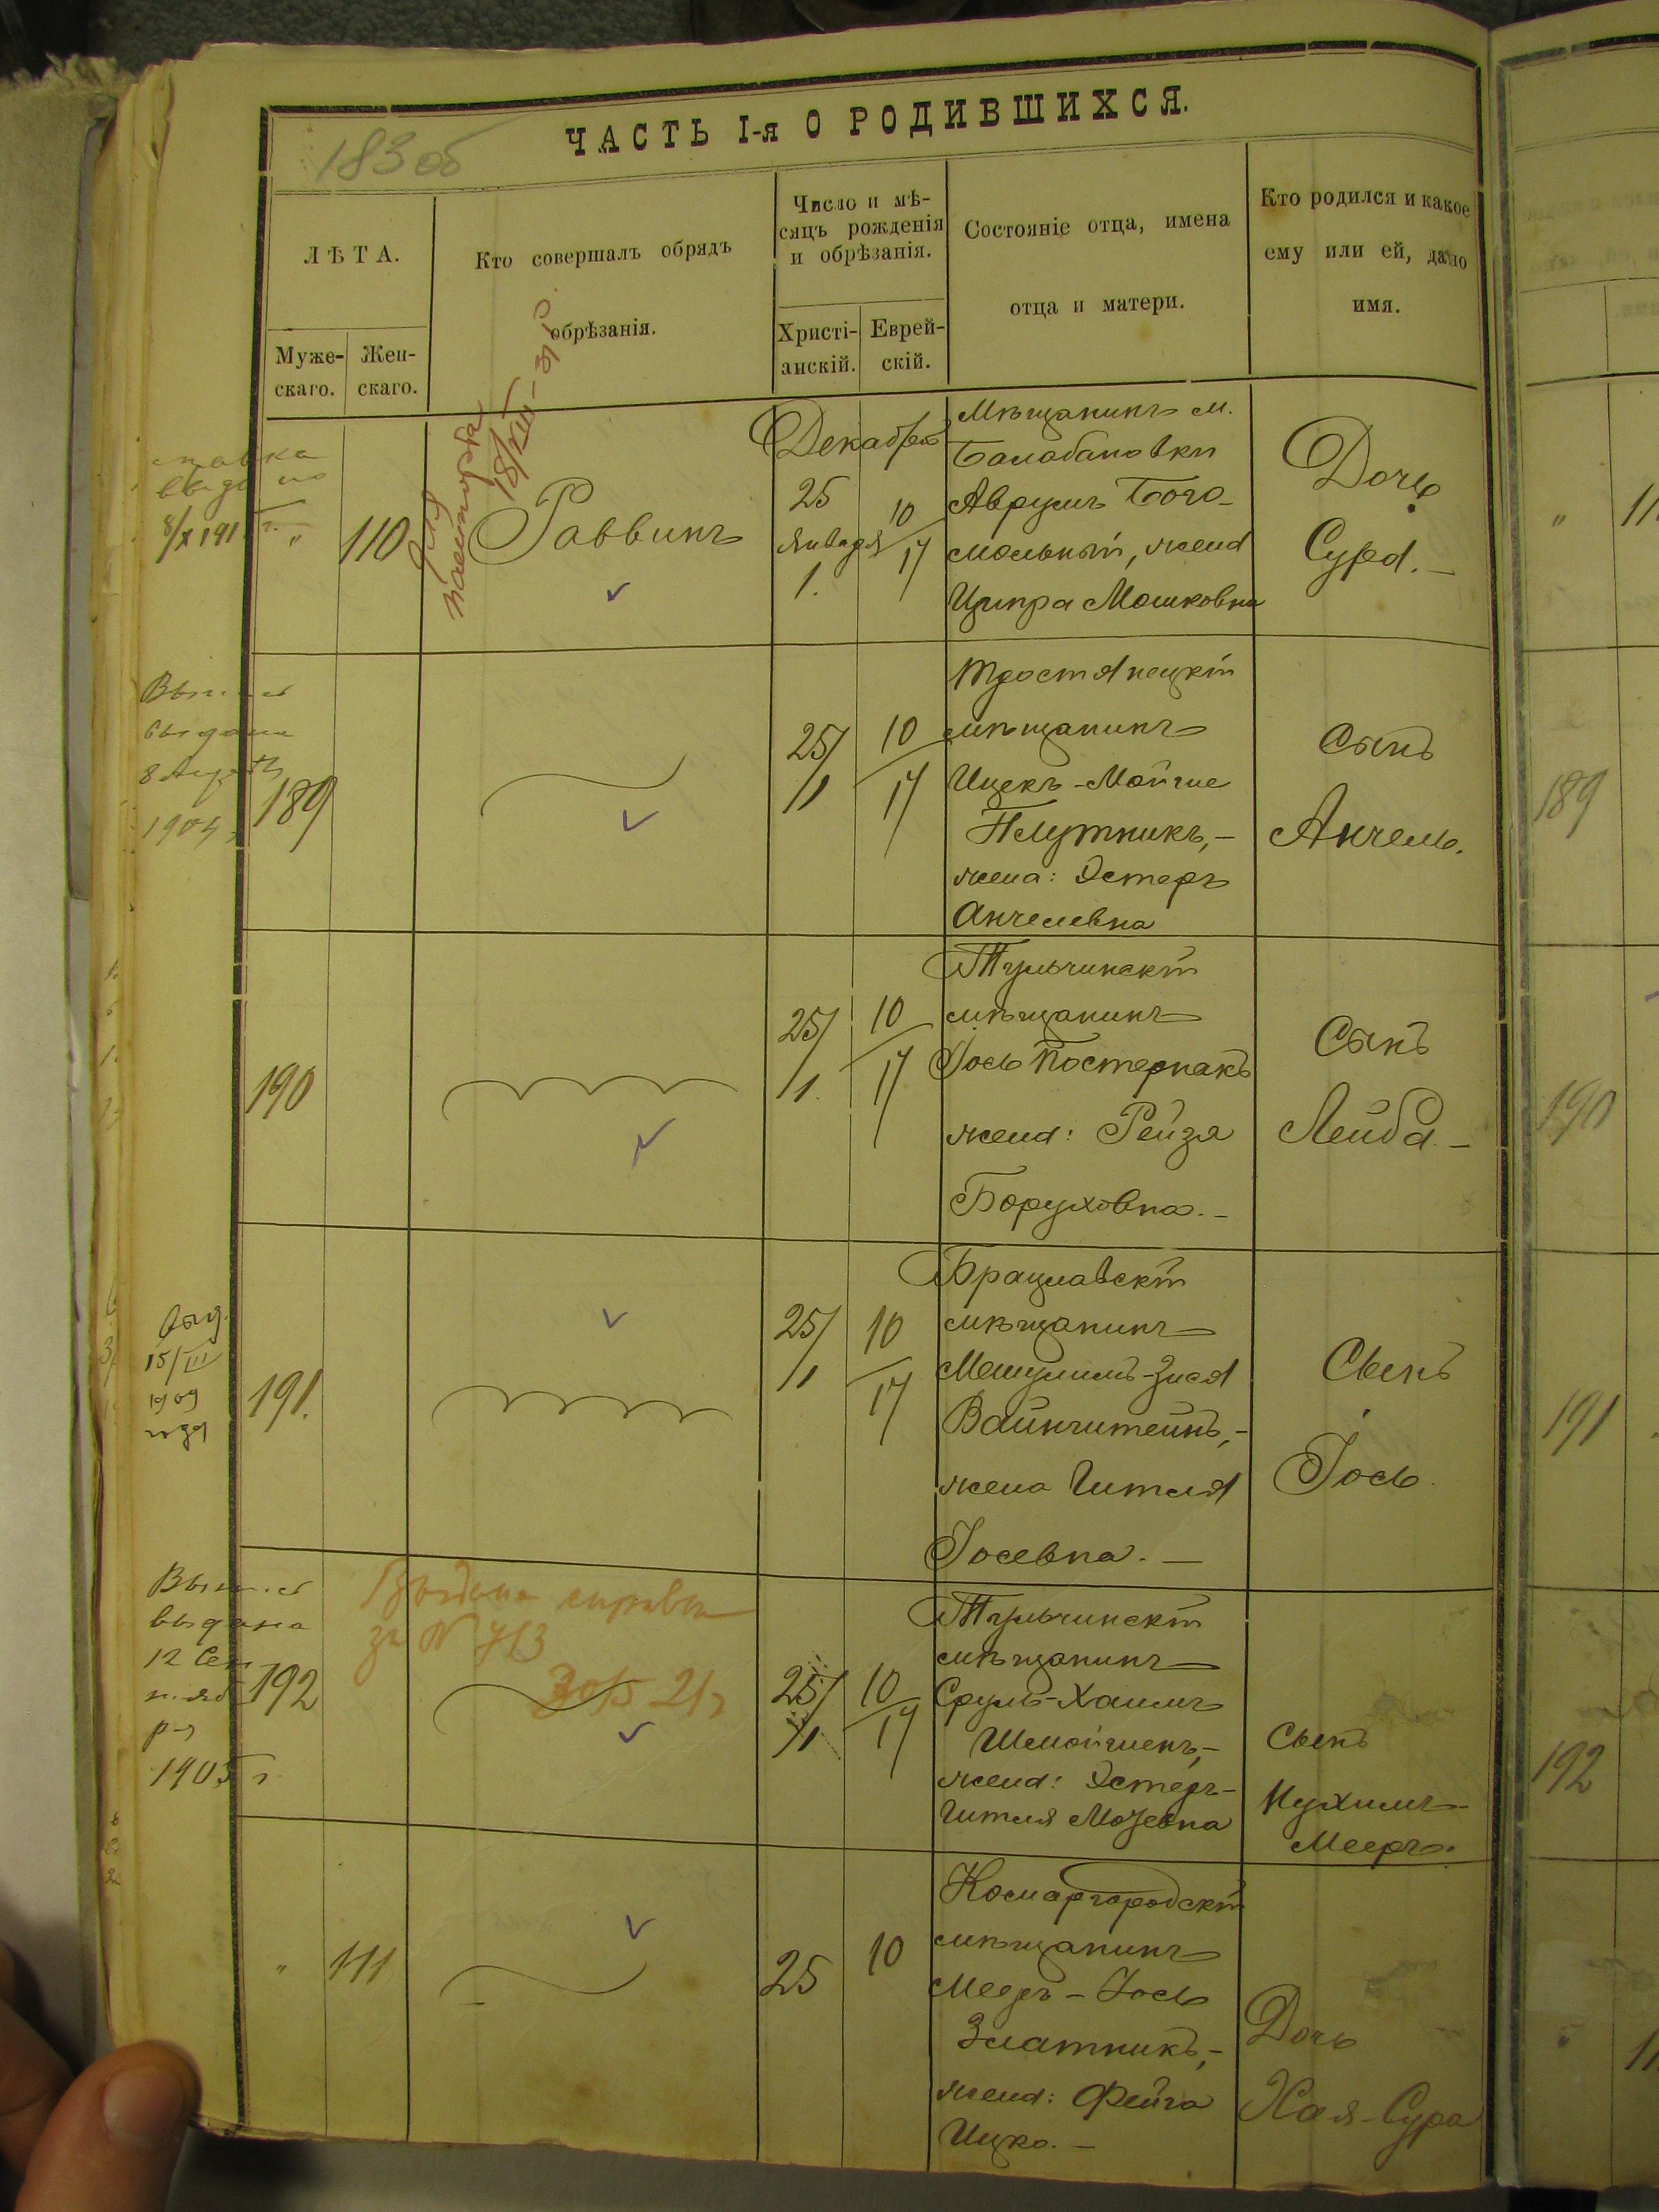 183 об
ЧАСТЬ I-я О РОДИВШИХСЯ.
ЛѢТА.
Муже-
скаго.
Жен-
скаго.
Кто совершалъ обрядъ
обрѣзанія.
Число и мѣ-
сяцъ рожденія
и обрѣзанія.
Христі-
анскій.
Еврей-
скій.
Состояніе отца, имена
отца и матери.
Кто родился и какое
ему или ей, дано
имя.
8/X 191
"
110
Для
паспорта
18/VIII
Раввинъ
Декабрь
25
Января
1.
10
17
Мѣщанинъ м.
Балабановки
Аврумъ Бого-
мольный, жена
Ципра Мошковна
Дочь
Сура.
выдана
8
1904
189
25/
/1
10
17
Тростянецкій
мѣщанинъ
Ицекъ-Мойше
Плутникъ,-
жена: Эстеръ
Анчелевна
Сынъ
Анчель.
190
25/
/1.
10
17
Тульчинскій
мѣщанинъ
Іось Постернакъ
жена: Рейзя
Боруховна.-
Сынъ
Лейба.-
Выд.
15/III
1909
года
191.
25/
/1
10
17
Брацлавскій
мѣщанинъ
Мешулимъ-Зися
Вайнштейнъ,-
жена Гитля
Іосевна.-
Сынъ
Іось.
выдана
12 Сен
тяб
ря
1905 г.
192
Выдана справка
за N 713
25/
/1
10
17
Тульчинскій
мѣщанинъ
Сруль-Хаимъ
Шмойшенъ,-
жена: Эстеръ-
Гитля
Сынъ
Нухимъ-
Мееръ.
"
111
25
10
Комаргородскій
мѣщанинъ
Мееръ-Іось
Златникъ,-
жена: Фейга
Ицко.-
Дочь
Хая-Сура
"
11
189
190
191
192
11